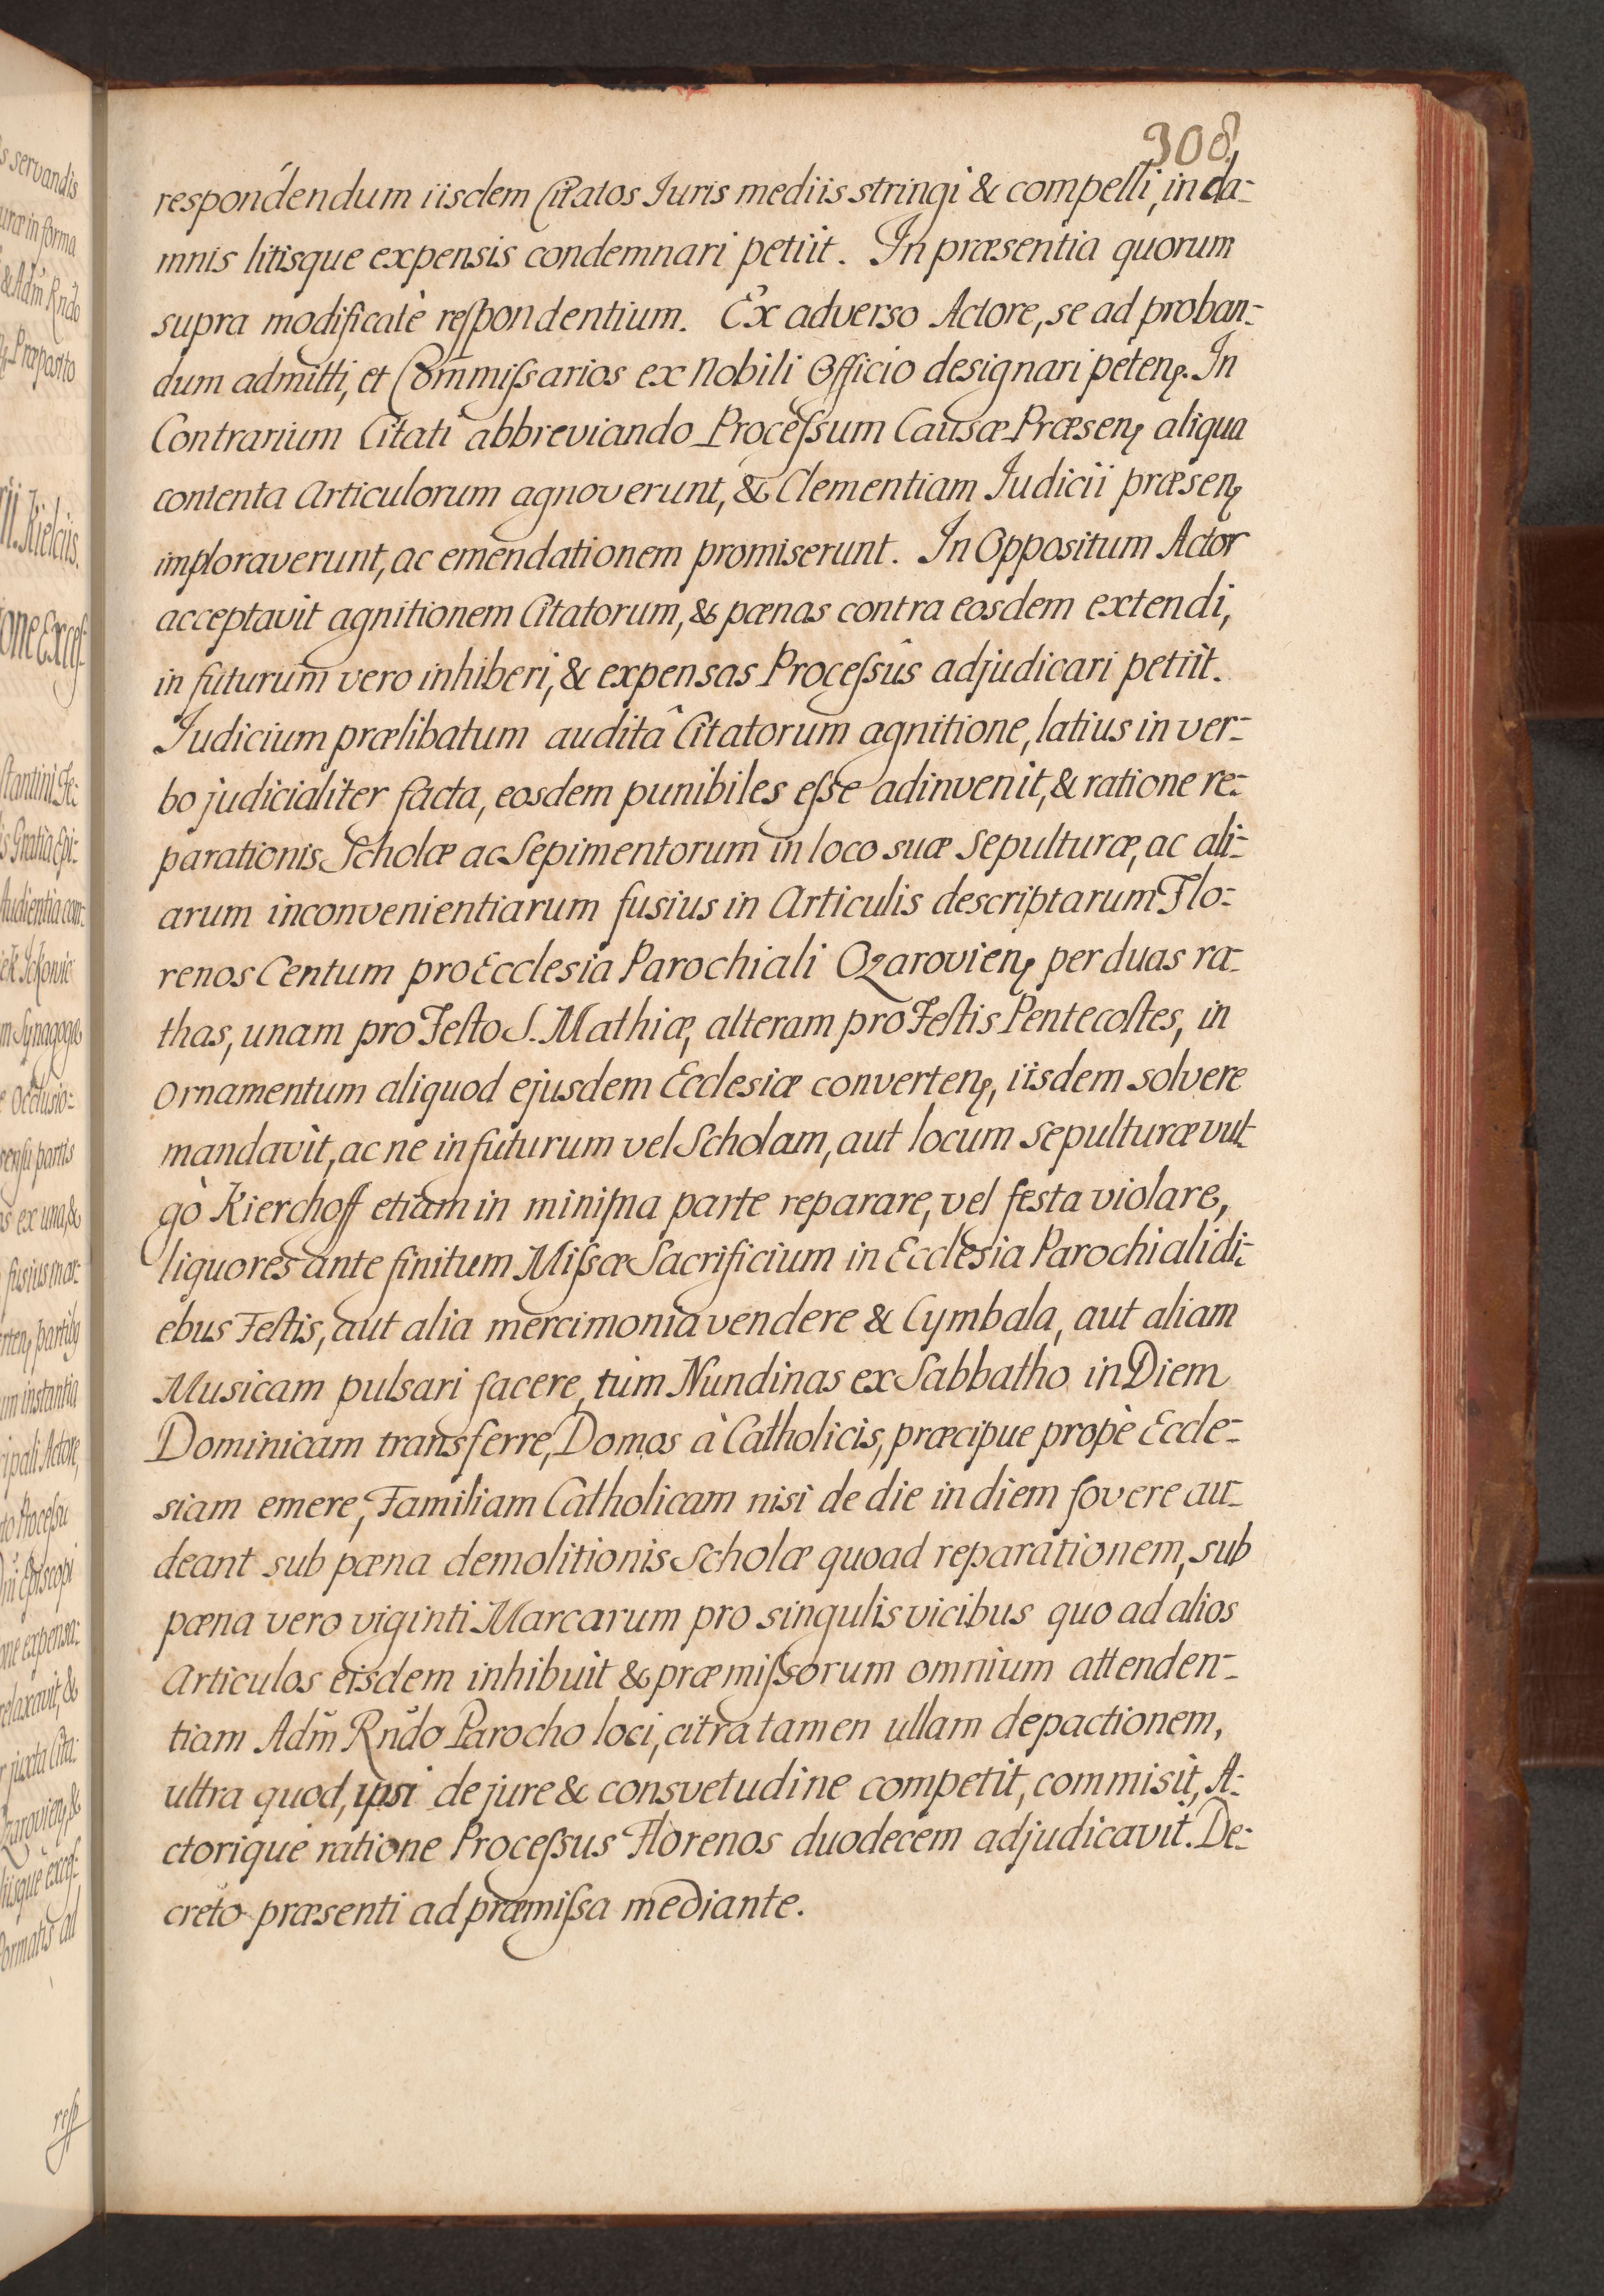 308.
respondendum iisdem Citatos Juris mediis stringi & compelli, in da-
mnis litisque expensis condemnari petiit. In præsentia quorum
supra modificatè reſpondentium. Ex adverso Actore, se ad proban-
dum admitti, et Com̄iſsarios ex Nobili Officio designari petenꝭ. In
Contrarium Citati abbreviando Proceſsum Causæ Præsenꝭ aliqua
contenta Articulorum agnoverunt, & Clementiam Judicii præsenꝭ
imploraverunt, ac emendationem promiserunt. In Oppositum Actor
acceptavit agnitionem Citatorum, & pœnas contra eosdem extendi,
in futurum vero inhiberi, & expensas Proceſsûs adjudicari petiit.
Judicium prælibatum auditâ Citatorum agnitione, latius in ver-
bo judicialiter facta, eosdem punibiles eſse adinvenit, & ratione re-
parationis Scholæ ac Sepimentorum in loco suæ Sepulturæ, ac ali-
arum inconvenientiarum fusius in Articulis descriptarum Flo-
renos Centum pro Ecclesia Parochiali Ozarovienꝭ per duas ra-
thas, unam pro Feſto S. Mathiæ, alteram pro Feſtis Pentecoſtes, in
Ornamentum aliquod ejusdem Ecclesiæ convertenꝭ, iisdem solvere
mandavit, ac ne in futurum vel Scholam, aut locum sepulturæ vul-
gò Kierchoff etiam in minima parte reparare, vel festa violare,
liquores ante finitum Miſsæ Sacrificium in Ecclesia Parochiali di-
ebus Feſtis, aut alia mercimonia vendere & Cymbala, aut aliam
Musicam pulsari facere, tùm Nundinas ex Sabbatho in Diem
Dominicam transferre, Domos à Catholicis, præcipue propè Eccle-
siam emere, Familiam Catholicam nisi de die in diem fovere au-
deant sub pœna demolitionis Scholæ quoad reparationem, sub
pœna vero viginti Marcarum pro singulis vicibus quo ad alios
Articulos eisdem inhibuit & præmiſsorum omnium attenden-
tiam Adm̄ Rndo Parocho loci, citra tamen ullam depactionem,
ultra quod, ipsi de jure & consvetudine competit, commisit, A-
ctorique ratione Proceſsus Florenos duodecem adjudicavit. De-
creto præsenti ad præmiſsa mediante.